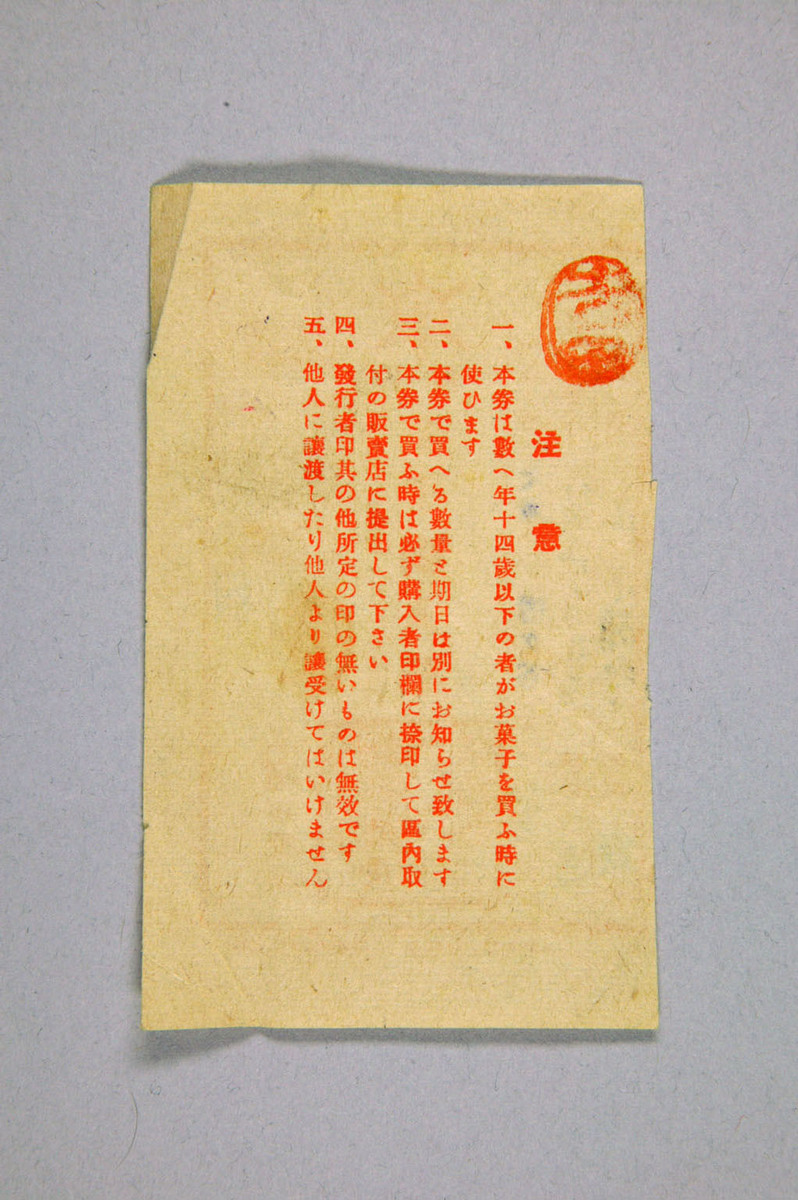 注意
一、本券は數へ年十四歲以下の者がお菓子を買ふ時に
使ひます
二、本券で買へる數量と期日は別にお知らせ致します
三、本券で買ふ時は必ず購入者印欄に捺印して區內取
付の販賣店に提出して下さい
四、發行者印其の他所定の印の無いものは無效です
五、他人に讓渡したり他人より讓受けてはいけません